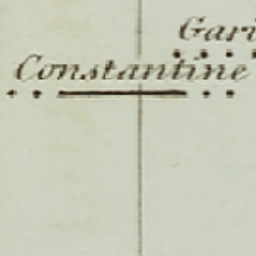 Gari
Constantine